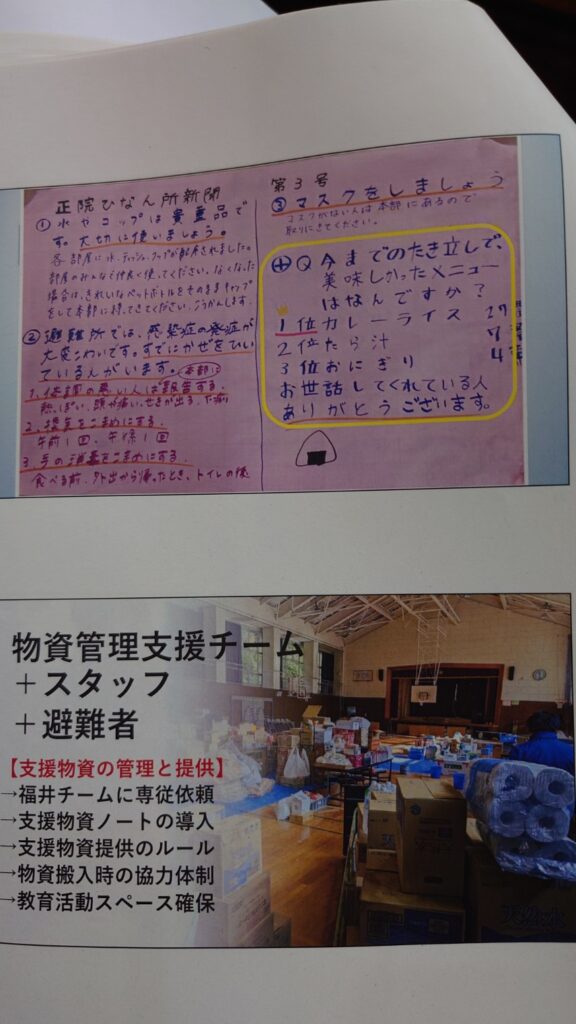 正院ひなん所新聞
①水やコップは貴重品で
す。大切に使いましょう。
各部屋に水、ティッシュ、コップが配布されました。
部屋のみんなで仲良く使ってください。なくなった
場合は、きれいなペットボトルをそのままキャップ
をして本部に持ってきてください。こうかんします。
②避難所では、感染症の発症が
大変こわいです。すでにかぜをひい
ている人がいます。本部に
1、体調の悪い人は報告する。
熱っぽい、頭が痛い、せきが出る、下痢
2、換気をこまめにする。
午前1回、午後1回
3、手の消毒をこまめにする。
食べる前、外出から帰ったとき、トイレの後
第3号
③マスクをしましょう
マスクがない人は本部にあるので
取りにきてください。
④Q今までのたき立しで、
美味しかったメニュー
はなんですか?
1位カレーライス
2位たら汁 8
3位おにぎり 4
お世話してくれている人
ありがとうございます。
物資管理支援チーム
+スタッフ
+避難者
【支援物資の管理と提供】
→福井チームに専従依頼
→支援物資ノートの導入
→支援物資提供のルール
→物資搬入時の協力体制
→教育活動スペース確保
天然水